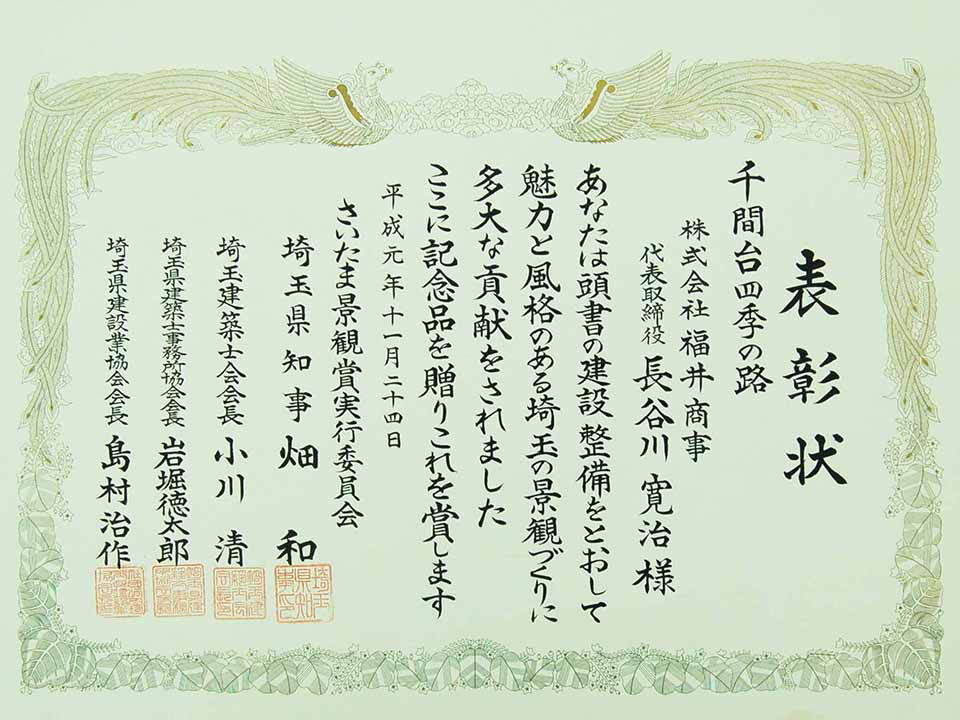 表彰状
千間台四季の路
株式会社福井商事
代表取締役 長谷川 寛治様
あなたは頭書の建設整備をとおして
魅力と風格のある埼玉の景観づくりに
多大な貢献をされました
ここに記念品を贈りこれを賞します
平成元年十一月二十四日
さいたま景観賞実行委員会
埼玉県知事 畑 和
埼玉建築士会会長 小川 清
埼玉県建築士事務所協会会長 岩堀徳太郎
埼玉県建設業協会会長 島村治作